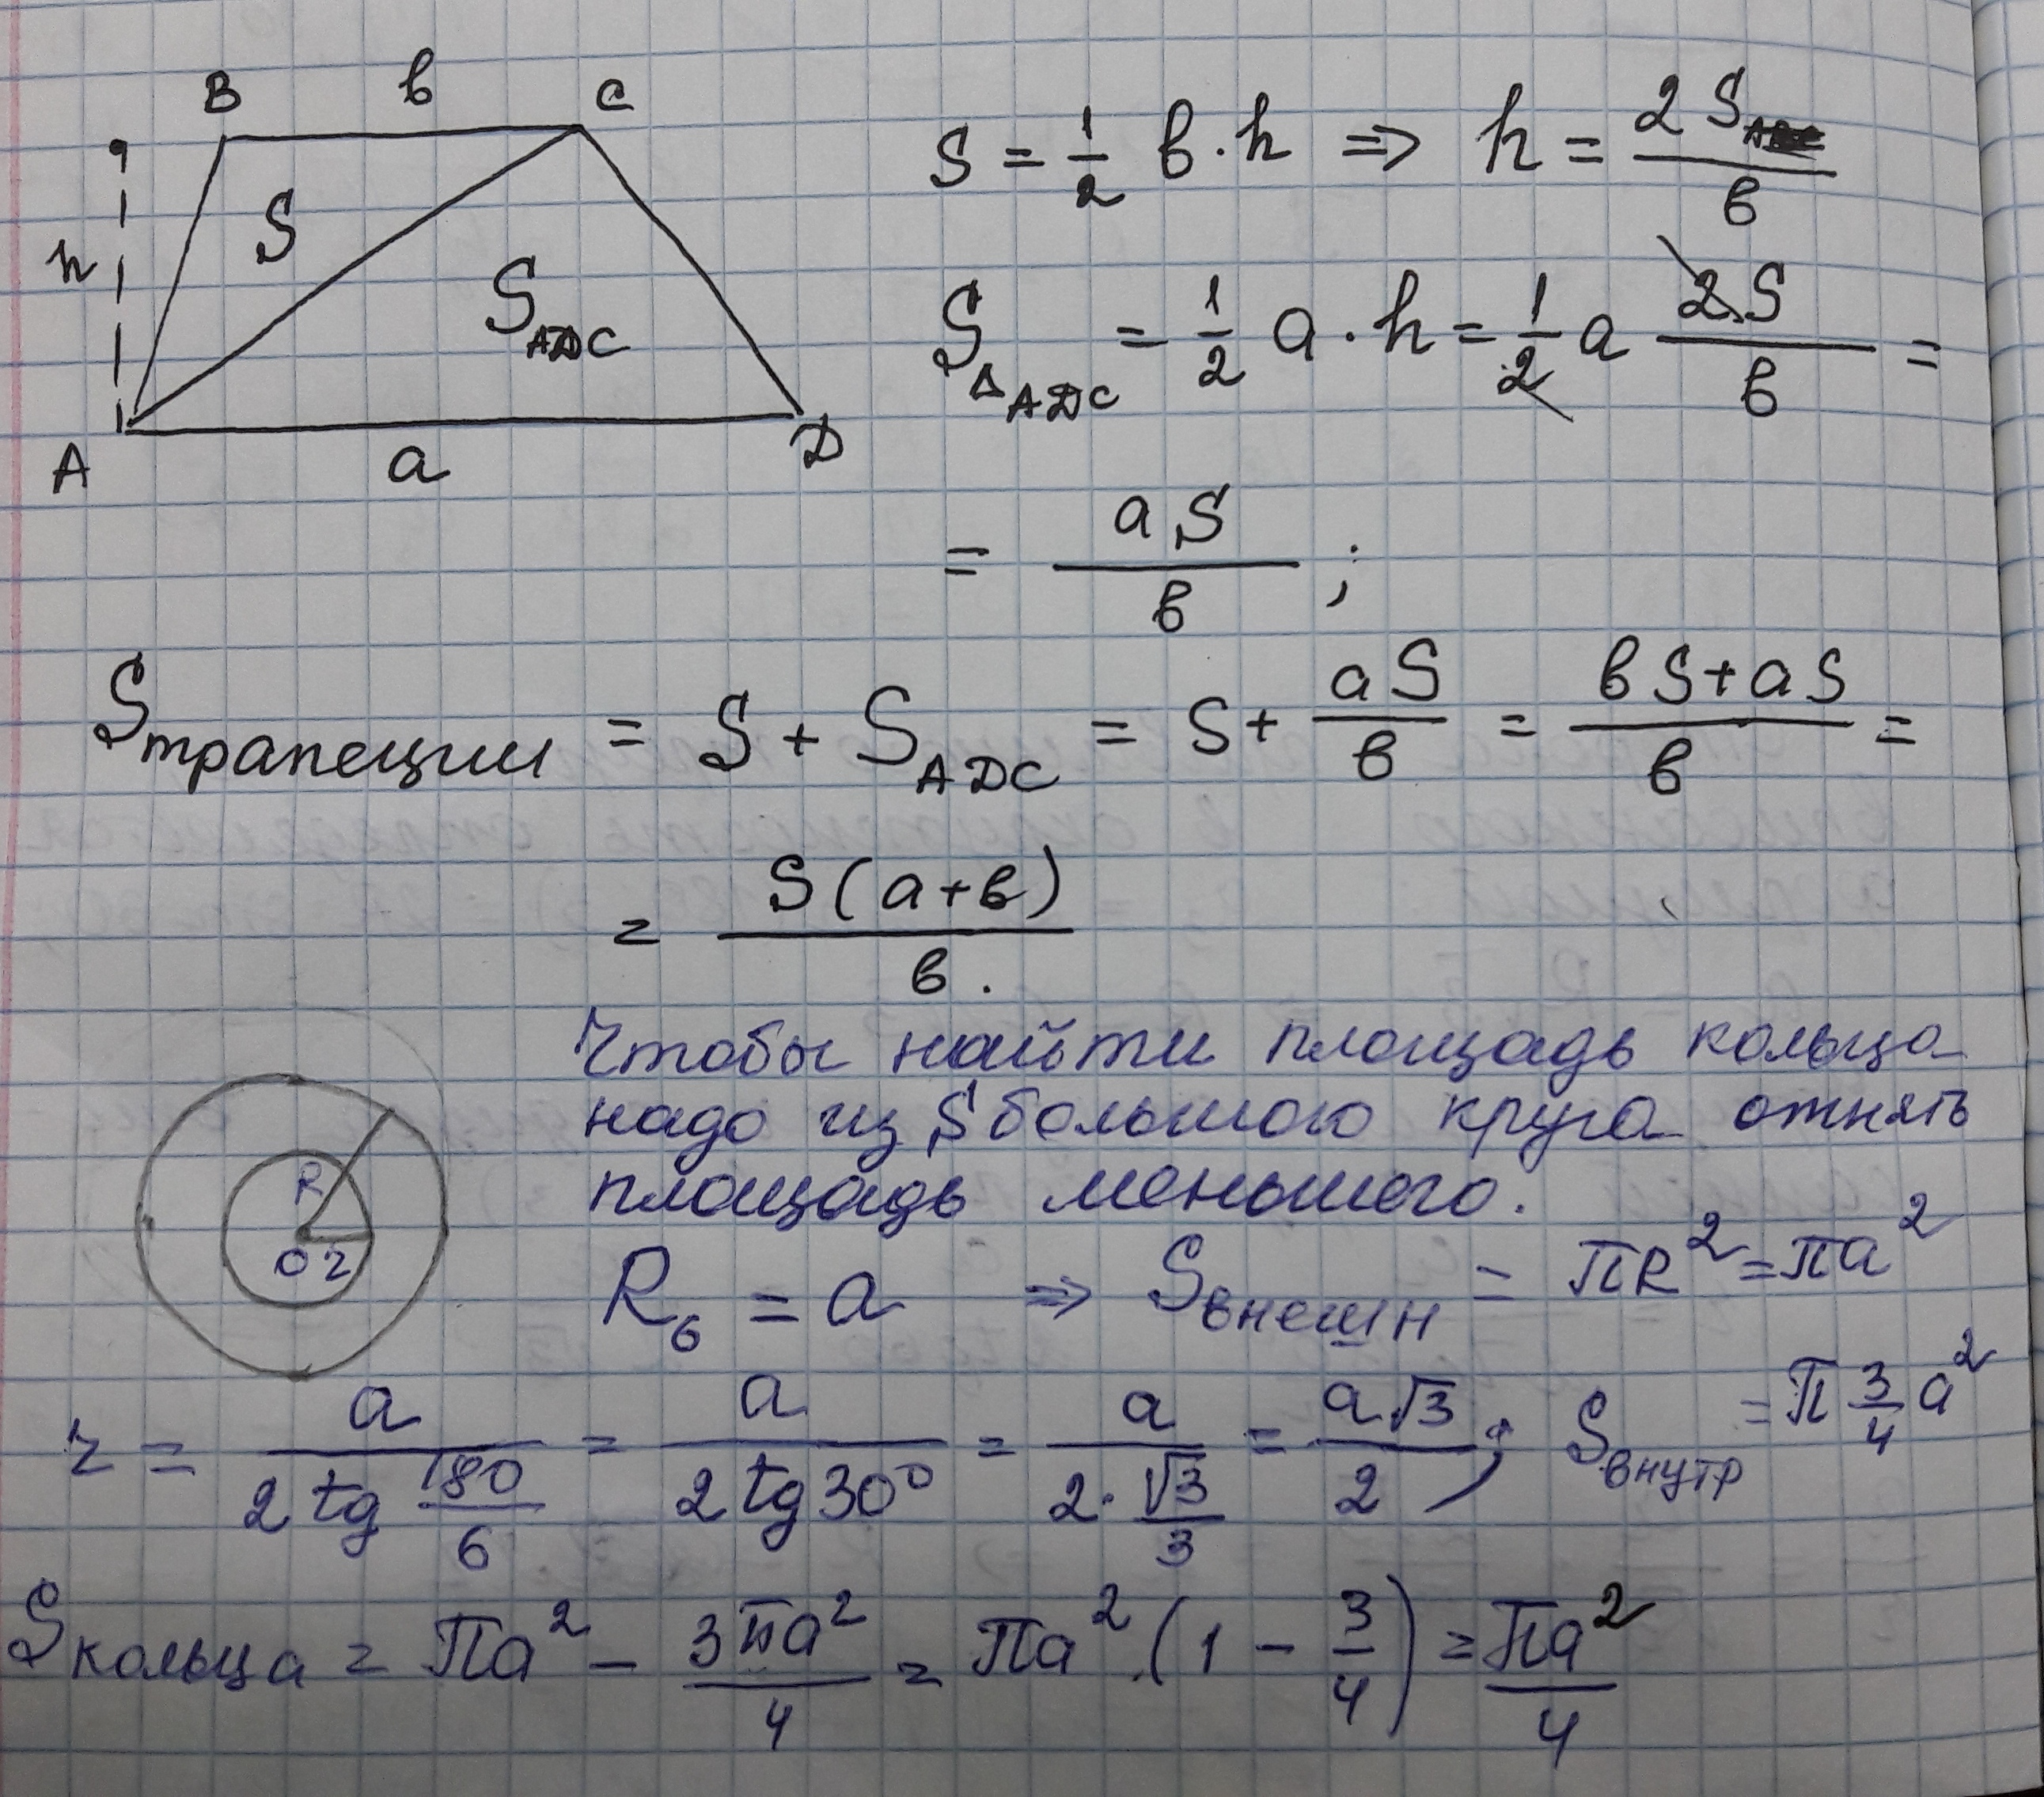 B в C
h S S_ADC
A a D
S = 1/2 в·h => h = 2S/в
S_ΔADC = 1/2 a·h = 1/2 a 2S/в =
= aS/в ;
S трапеции = S + S_ADC = S + aS/в = (вS+aS)/в =
= S(a+в)/в .
Чтобы найти площадь кольца
надо из S большого круга отнять
площадь меньшего.
R
O r
R₆ = a => S внешн = πR² = πa²
r = a/(2 tg 180/6) = a/(2 tg 30°) = a/(2·√3/3) = a√3/2 ; S внутр = π 3/4 a²
S кольца = πa² - 3πa²/4 = πa² (1 - 3/4) = πa²/4